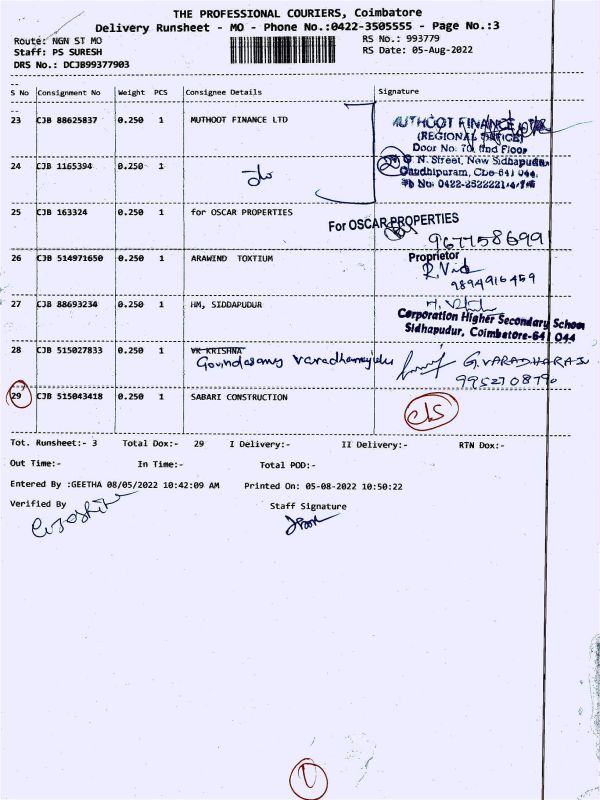 THE PROFESSIONAL COURIERS, Coimbatore
Delivery Runsheet - MO - Phone No.:0422-3505555 - Page No.:3
Route: NGN ST MO RS No.: 993779
Staff: PS SURESH RS Date: 05-Aug-2022
DRS No.: DCJB99377903
S No Consignment No Weight PCS Consignee Details Signature
23 CJB 88625837 0.250 1 MUTHOOT FINANCE LTD
MUTHOOT FINANCE
(REGIONAL OFFICE)
Door No: 70, IInd Floor
N. Street, New Sidhapudur,
Gandhipuram, Cbe-641 044.
Ph No: 0422-2522221
24 CJB 1165394 0.250 1
25 CJB 163324 0.250 1 for OSCAR PROPERTIES
For OSCAR PROPERTIES
9677158699
Proprietor
26 CJB 514971650 0.250 1 ARAWIND TOXTIUM
9894916459
27 CJB 88693234 0.250 1 HM, SIDDAPUDUR
Corporation Higher Secondary School
Sidhapudur, Coimbatore-641 044
28 CJB 515027833 0.250 1 VK KRISHNA
Govindasamy Varadharajulu G. VARADHARAJU
9952708790
29 CJB 515043418 0.250 1 SABARI CONSTRUCTION
Tot. Runsheet:- 3 Total Dox:- 29 I Delivery:- II Delivery:- RTN Dox:-
Out Time:- In Time:- Total POD:-
Entered By :GEETHA 08/05/2022 10:42:09 AM Printed On: 05-08-2022 10:50:22
Verified By Staff Signature